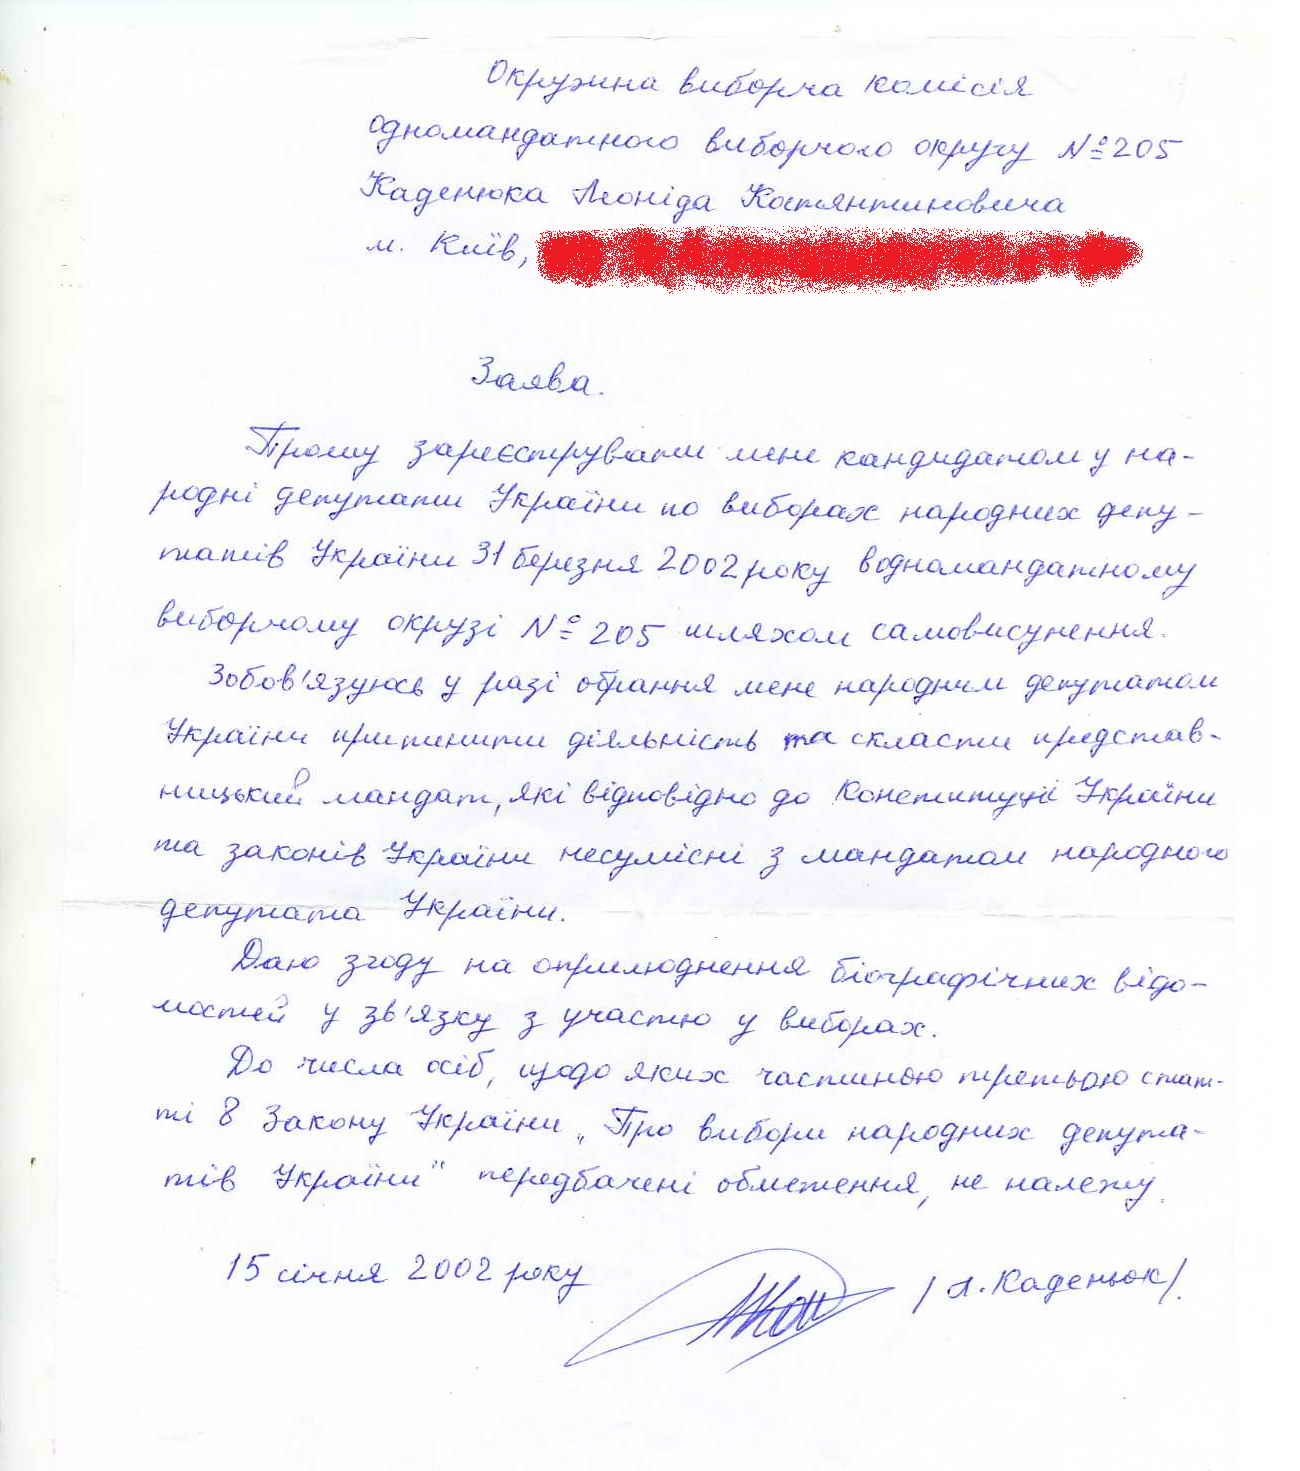 Окружна виборча комісія
одномандатного виборчого округу № 205
Каденюка Леоніда Костянтиновича
м. Київ,
Заява.
Прошу зареєструвати мене кандидатом у на-
родні депутати України по виборах народних депу-
татів України 31 березня 2002 року в одномандатному
виборчому окрузі № 205 шляхом самовисунення.
Зобов'язуюсь у разі обрання мене народним депутатом
України припинити діяльність та скласти представ-
ницький мандат, які відповідно до Конституції України
та законів України несумісні з мандатом народного
депутата України.
Даю згоду на оприлюднення біографічних відо-
мостей у зв'язку з участю у виборах.
До числа осіб, щодо яких частиною третьою стат-
ті 8 Закону України „Про вибори народних депута-
тів України" передбачені обмеження, не належу.
15 січня 2002 року
/Л. Каденюк/.